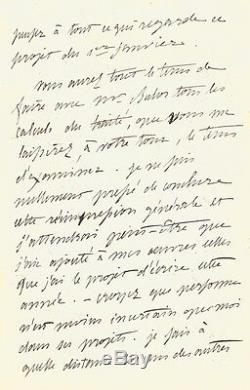 pensez à tout ce qui regarde ce
projet du 1er janvier.
Vous aurez tout le tems de
faire avec Mr tous les
calculs du traité, que vous me
laisserez, à votre tour, le tems
d'examiner. je ne suis
nullement pressé de conclure
cette réimpression générale et
j'attendrai peut-être que
j'aie ajouté à mes œuvres celles
que j'ai le projet d'écrire cette
année. - croyez que personne
n'est moins incertain que moi
dans ses projets. je sais à
quelle distance les uns des autres